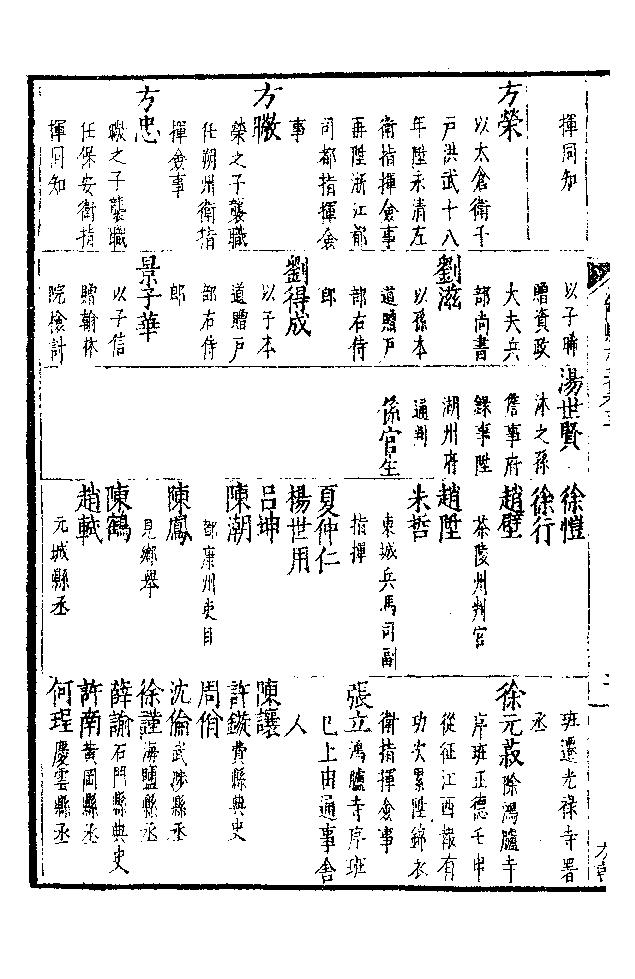 揮同知
方榮
以太倉衛千
户洪武十八
年陞永清左
衛指揮僉事
再陞浙江都
司都指揮僉
事
方
榮之子襲職
任朔州衛指
揮僉事
方忠
之子襲職
任保安衛指
揮同知
以子聯
贈資政
大夫兵
部尚書
劉滋
以孫本
道贈户
部右侍
郎
劉得成
以子本
道贈户
部右侍
郎
景子華
以子信
贈翰林
院檢討
湯世賢
沐之孫
詹事府
錄事陞
湖州府
通判
係官生
徐愷
徐行
趙璧
茶陵州判官
趙陞
朱哲
東城兵馬司副
指揮
夏仲仁
楊世用
吕坤
陳潮
都康州吏目
陳鳳
見鄉舉
陳鶴
趙軾
元城縣丞
班遷光祿寺署
丞
徐元菽 除鴻臚寺
序班正德壬申
從征江西報有
功次累陞錦衣
衛指揮僉事
張立 鴻臚寺序班
已上由通事舍
人
陳讓
許 費縣典史
周
沈倫 武陟縣丞
徐謹 海縣丞
薛諭 石門縣典史
許南 黄岡縣丞
何珵 慶雲縣丞